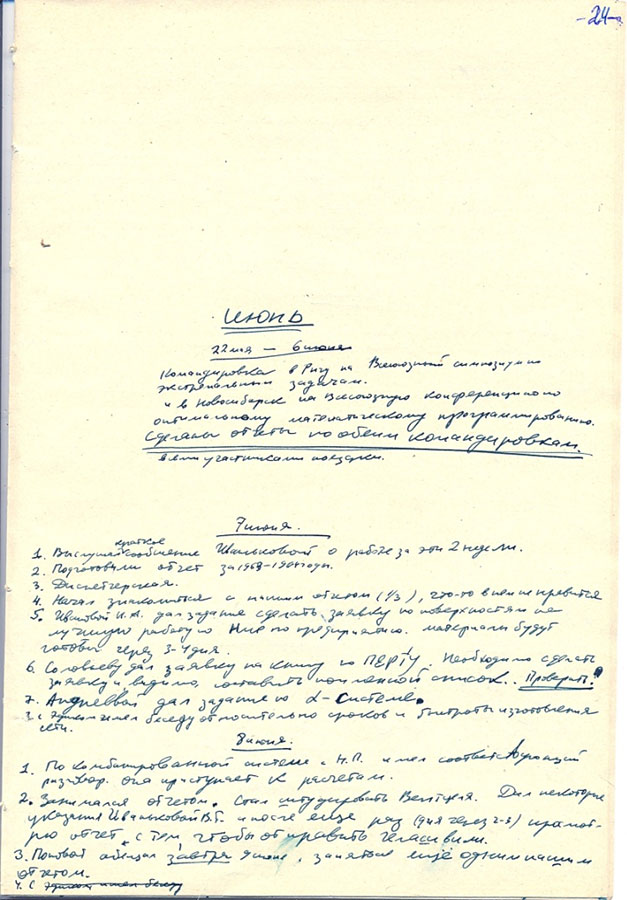 -24-
Июнь
22 мая — 6 июня
Командировка в Ригу на Всесоюзный симпозиум по
экстремальным задачам.
и в Новосибирск на Всесоюзную конференцию по
оптимальному математическому программированию.
Сделаны отчеты по обеим командировкам
всеми участниками поездки.
7 июня.
краткое
1. Выслушал сообщение Иваньковой о работе за эти 2 недели.
2. Подготовили отчет за 1968-1969 годы.
3. Диспетчерская.
4. Начал знакомиться с нашим отчетом (1/3), что-то в нем не нравится
5. Ивановой И.А. дал задание сделать заявку по поверхностям на
лучшую работу по НИР по предприятию. материалы будут
готовы через 3-4 дня.
6. Соловьеву дал заявку на книгу по ПЕРТу. Необходимо сделать
заявку и видимо, составить поименной список. Проверить!
7. Андреевой дал задание по α-системе.
с имел беседу относительно сроков и быстроты изготовления
сети.
8 июня.
1. По комбинированной системе с Н.П. имел соответствующий
разговор. она приступает к расчетам.
2. Занимался отчетом. Стал штудировать Вентцеля. Дал некоторые
указания Иваньковой В.Г. и после еще раз (дня через 2-3)
отчет с тем, чтобы отправить
3. Поповой обещал завтра 9 июня, заняться ещё одним нашим
отчетом.
4. С имел беседу